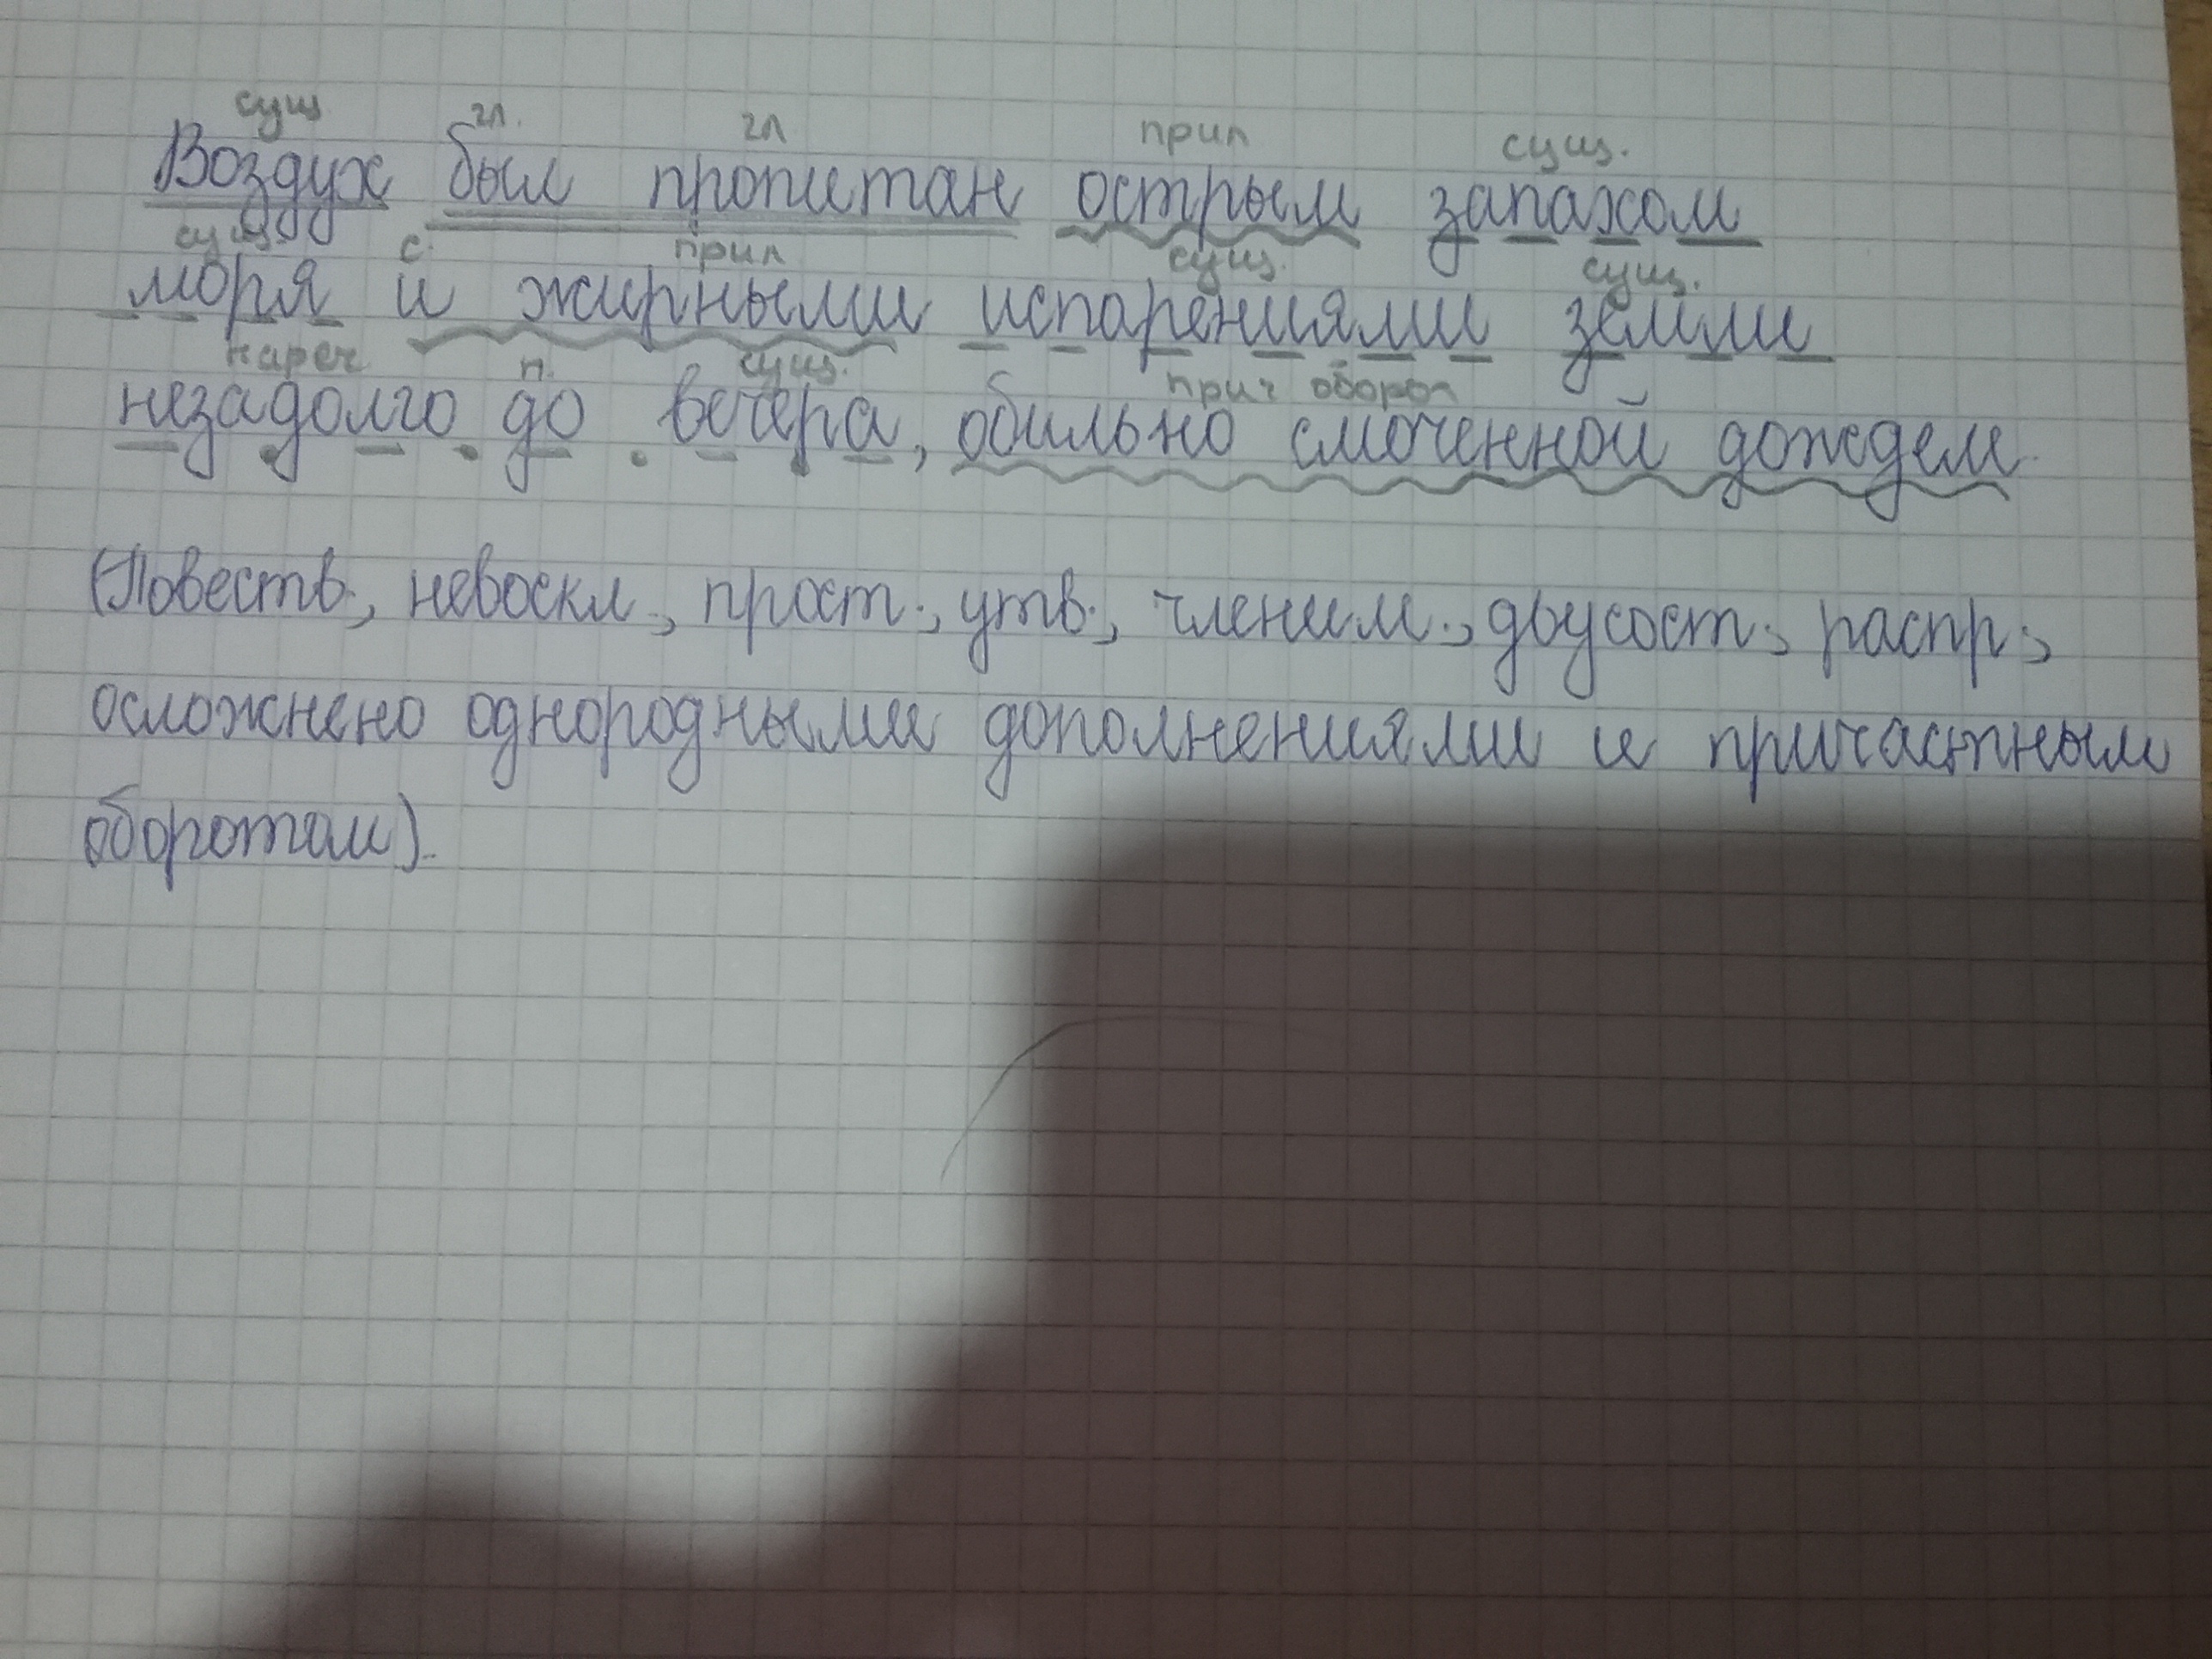 сущ гл. гл прил сущ.
Воздух был пропитан острым запахом
сущ. с. прил сущ. сущ.
моря и жирными испарениями земли
нареч п. сущ. прич оборот
незадолго до вечера, обильно смоченной дождем.
(Повеств., невоскл., прост., утв., членим., двусост., распр.,
осложнено однородными дополнениями и причастным
оборотом).